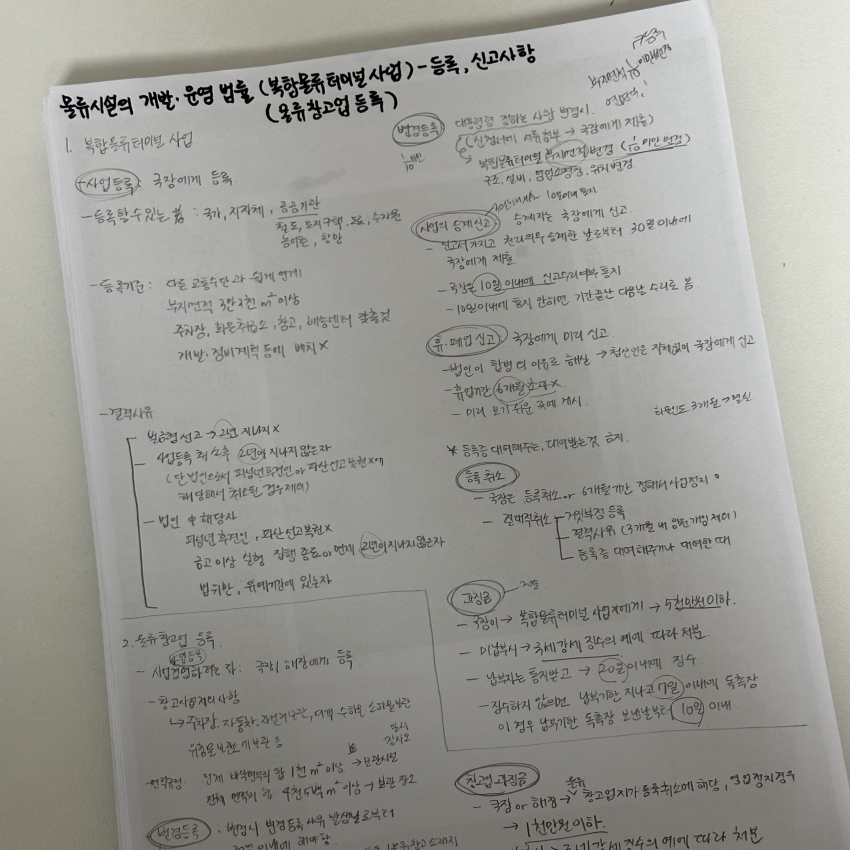 물류시설의 개발·운영 법률 (복합물류터미널사업) - 등록, 신고사항
(물류창고업 등록)
1. 복합물류터미널 사업
사업등록: 국장에게 등록
- 등록할수있는 놈 : 국가, 지자체, 공공기관
철도, 토지주택, 도로, 수자원
농어촌, 항만
- 등록기준 : 다른 교통수단과 쉽게 연계
부지면적 3만3천 m² 이상
주차장, 화물취급소, 창고, 배송센터 갖출것
개발·정비계획 등에 배치 X
- 결격사유
벌금형 선고 → 2년 지나지 X
- 사업등록 취소후 2년이 지나지 않은자
(단 법인으로서 피성년후견인 or 파산선고복권X에
해당해서 취소된 경우제외)
- 법인 中 해당자
피성년후견인, 파산선고복권X
금고이상 실형 집행 종료 or 면제 2년이 지나지않은자
법위반, 유예기간에 있는자
변경등록
대통령령 정하는 사항 변경시.
(신청서에 서류첨부 → 국장에게 제출)
복합물류터미널 부지면적 변경 (1/10 이만 변경)
구조, 설비, 영업소명칭, 위치변경
1/10
부지면적 1/10 이만변경
10일이내 통지
사업의 승계신고 : 승계자는 국장에게 신고
- 신고서가지고 권리의무승계한 날로부터 30일 이내에
국장에게 제출
- 국장은 10일 이내에 신고수리여부 통지
- 10일이내에 통지 안하면 기간끝난 다음날 수리로 봄
휴·폐업 신고: 국장에게 미리 신고.
- 법인이 합병 외 이유로 해산 → 청산인은 지체없이 국장에게 신고
- 휴업기간 6개월 초과 X.
- 미리 보기 쉬운 곳에 게시.
※ 등록증 대여해주는, 대여받는것 금지.
등록 취소
- 국장은 등록취소 or 6개월기간 정해서 사업정지
- 절대적취소 - 거짓부정 등록
- 결격사유 (3개월 내 임원개임 제외)
- 등록증 대여해주거나 대여한 때
과징금
- 국장이 → 복합물류터미널 사업자에게 → 5천만원이하.
- 미납부시 → 국세강제 징수의 예에 따라 처분.
- 납부자는 통지받고 → 20일 이내에 징수.
- 징수하지 않으면 납부기한 지나고 7일 이내에 독촉장
이 경우 납부기한 독촉장 보낸날부터 10일 이내
2. 물류창고업 등록.
사업등록
- 사업경영하려는 자: 국장 or 해장에게 등록
- 창고사업제외사항
↳ 주차장, 자동차, 자전거보관, 여객 수하물 소화물보관
위험물보관소에 보관 등
- 면적규정: 전체 바닥면적의 합 1천 m² 이상 → 보관시설
전체 면적의 합 4천5백 m² 이상 → 보관 장소
변경등록 : 변경시 변경등록 사유 발생날로부터
창고업-과징금
- 국장 or 해장 → 물류창고업자가 등록취소에 해당, 영업정지경우
→ 1천만원 이하.
국세강제 징수의 예에 따라 처분.